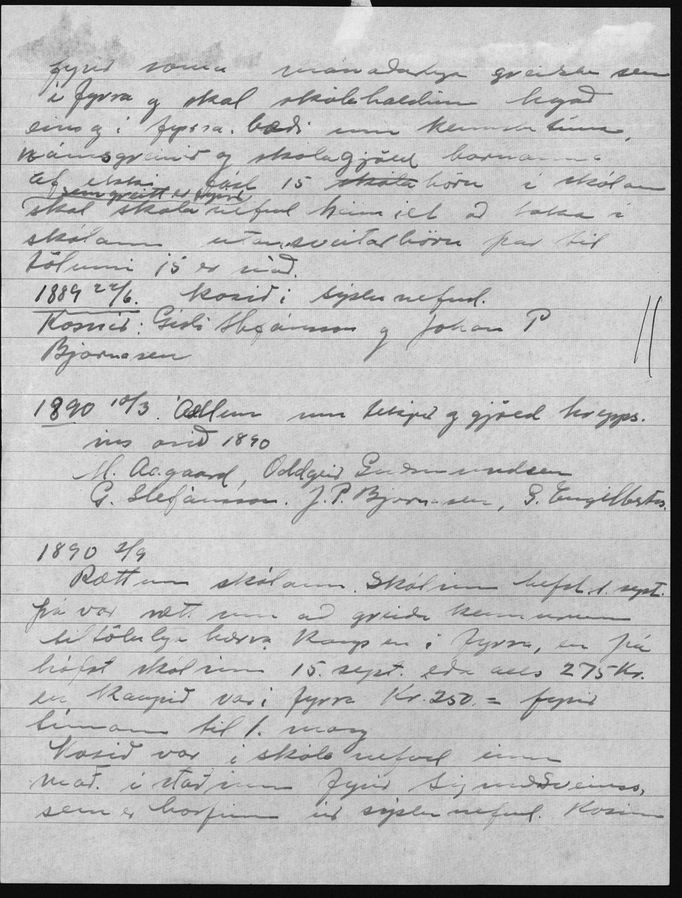 fyrir sama mánaðarlega greiðslu sem
í fyrra og skal skólahaldinu hagað
eins og í fyrra. bæði um kennslutíma,
námsgreinir og skólagjöld barnanna.
ef ekki 15 skóla börn í skólan
sem greitt er fyrir
skal skólanefnd heimilt að taka í
skólann utansveitarbörn þar til
tölunni 15 er náð.
1889 22/6. Kosið í sýslunefnd.
Kosnir: Gísli Stefánsson og Jóhan P
Bjarnasen
1890 10/3. Áætlun um tekjur og gjöld hrepps-
ins árið 1890
M. Aagaard, Oddgeir Gudmundsen
G. Stefánsson. J. P. Bjarnasen, G. Engilbertss.
1890 2/9
Rætt um skólann. Skólinn hefst 1. sept.
þá var rætt um að greiða kennurum
tiltölulega hærra kaup en í fyrra, en þá
hófst skólinn 15. sept. eða alls 275 Kr.
en kaupið var í fyrra Kr. 250.= fyrir
tímann til 1. marz
Kosið var í skólanefnd einn
mað. í staðinn fyrir Sigm. Sveinss,
sem er horfinn úr sýslunefnd. Kosinn